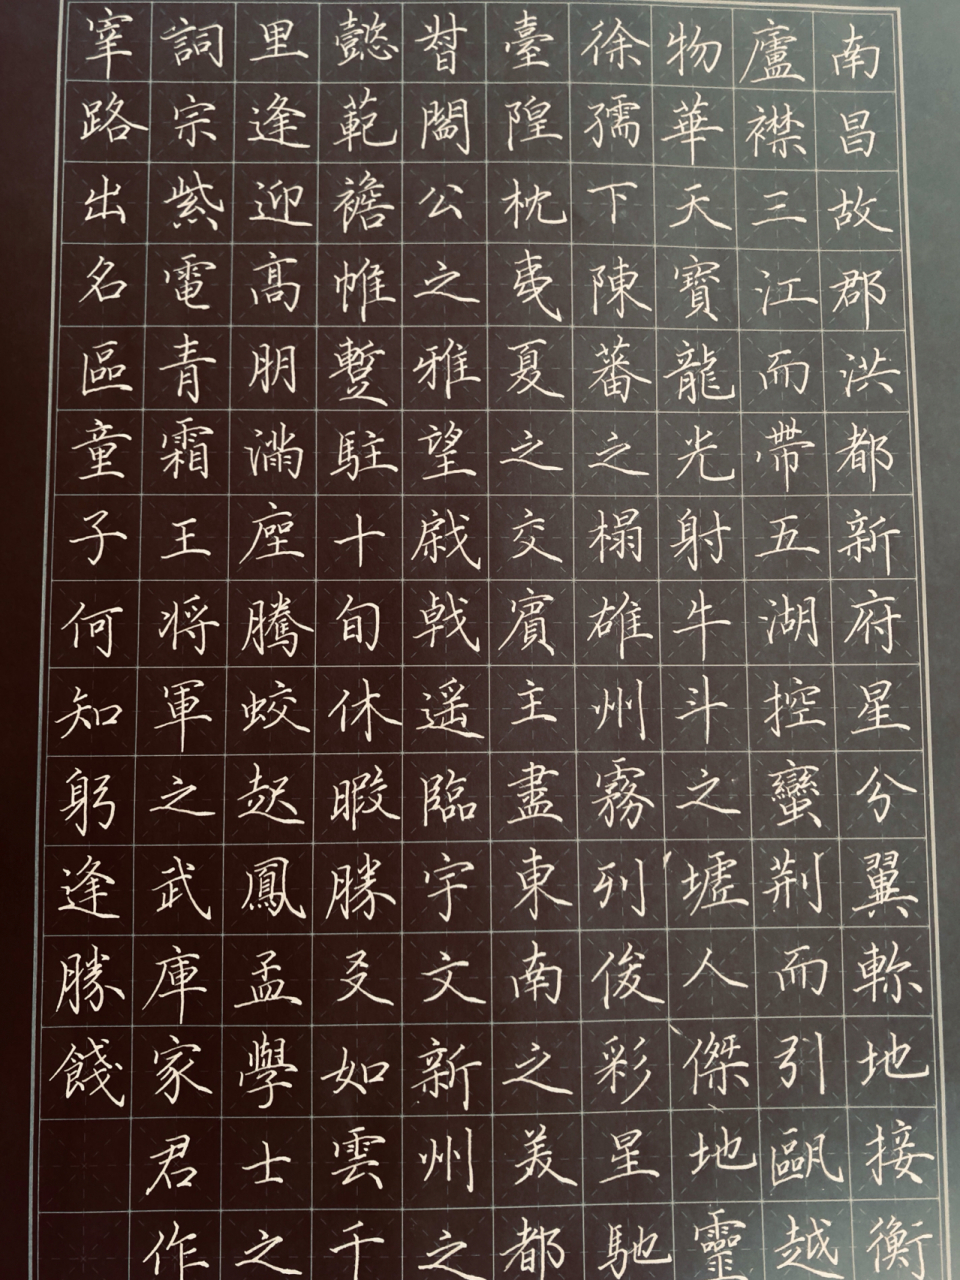 南昌故郡洪都新府星分翼軫地接衡
廬襟三江而帶五湖控蠻荆而引甌越
物華天寶龍光射牛斗之墟人傑地靈
徐孺下陳蕃之榻雄州霧列俊彩星馳
臺隍枕夷夏之交賓主盡東南之美都
督閻公之雅望戚戟遥臨宇文新州之
懿範襜帷暫駐十旬休暇勝友如雲千
里逢迎高朋滿座騰蛟起鳳孟學士之
詞宗紫電青霜王將軍之武庫家君作
宰路出名區童子何知躬逢勝餞